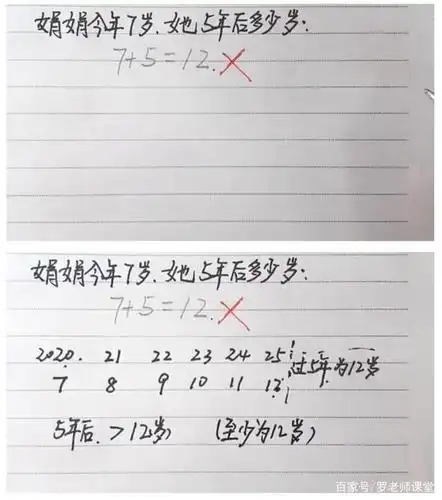 娟娟今年7岁.她5年后多少岁:
7+5=12.
娟娟今年7岁.她5年后多少岁:
7+5=12.
2020. 21 22 23 24 25 过5年为12岁
7 8 9 10 11 12
5年后.>12岁 (至少为12岁)
百家号/罗老师课堂